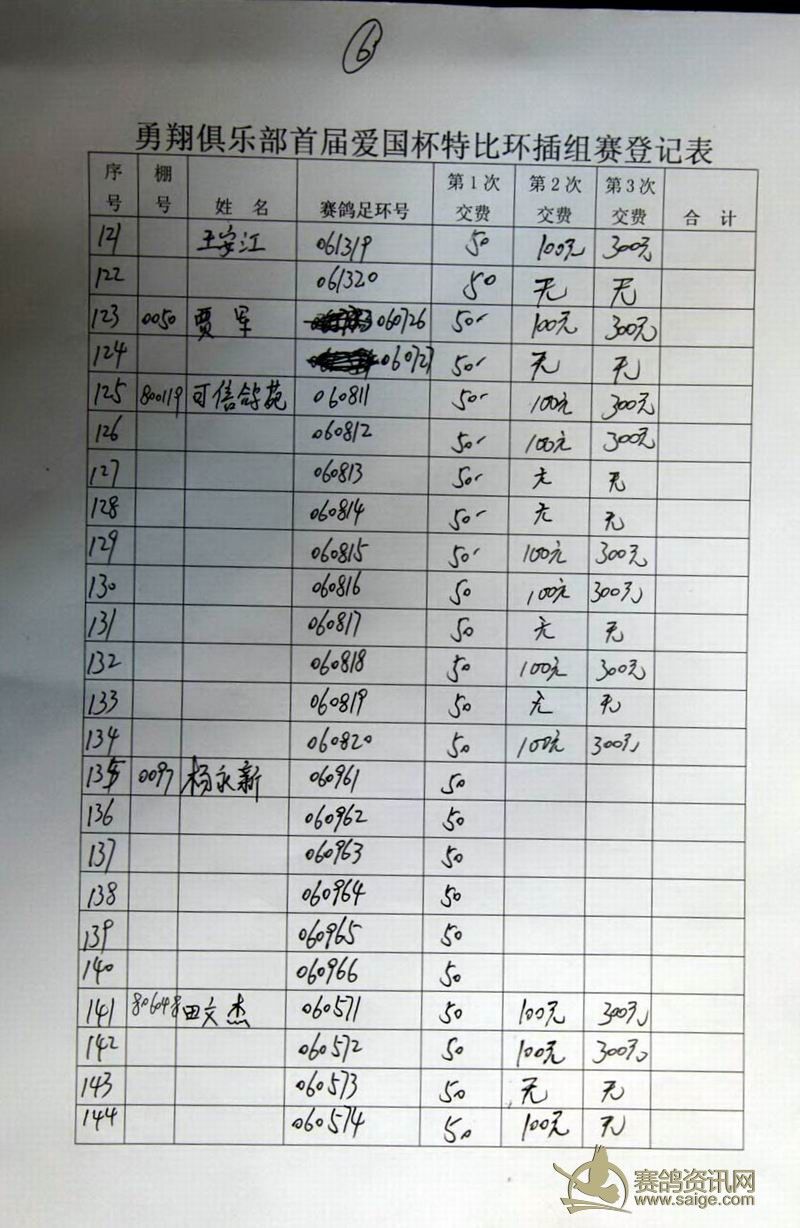 6
勇翔俱乐部首届爱国杯特比环插组赛登记表
序号 棚号 姓 名 赛鸽足环号 第1次交费 第2次交费 第3次交费 合 计
121 王安江 061319 50 100元 300元
122 061320 50 无 无
123 0050 贾军 060726 50 100元 300元
124 060727 50 无 无
125 800119 可信鸽苑 060811 50 100元 300元
126 060812 50 100元 300元
127 060813 50 无 无
128 060814 50 无 无
129 060815 50 100元 300元
130 060816 50 100元 300元
131 060817 50 无 无
132 060818 50 100元 300元
133 060819 50 无 无
134 060820 50 100元 300元
135 0097 杨永新 060961 50
136 060962 50
137 060963 50
138 060964 50
139 060965 50
140 060966 50
141 806048 田文杰 060571 50 100元 300元
142 060572 50 100元 300元
143 060573 50 无 无
144 060574 50 100元 无
赛鸽资讯网
www.saige.com